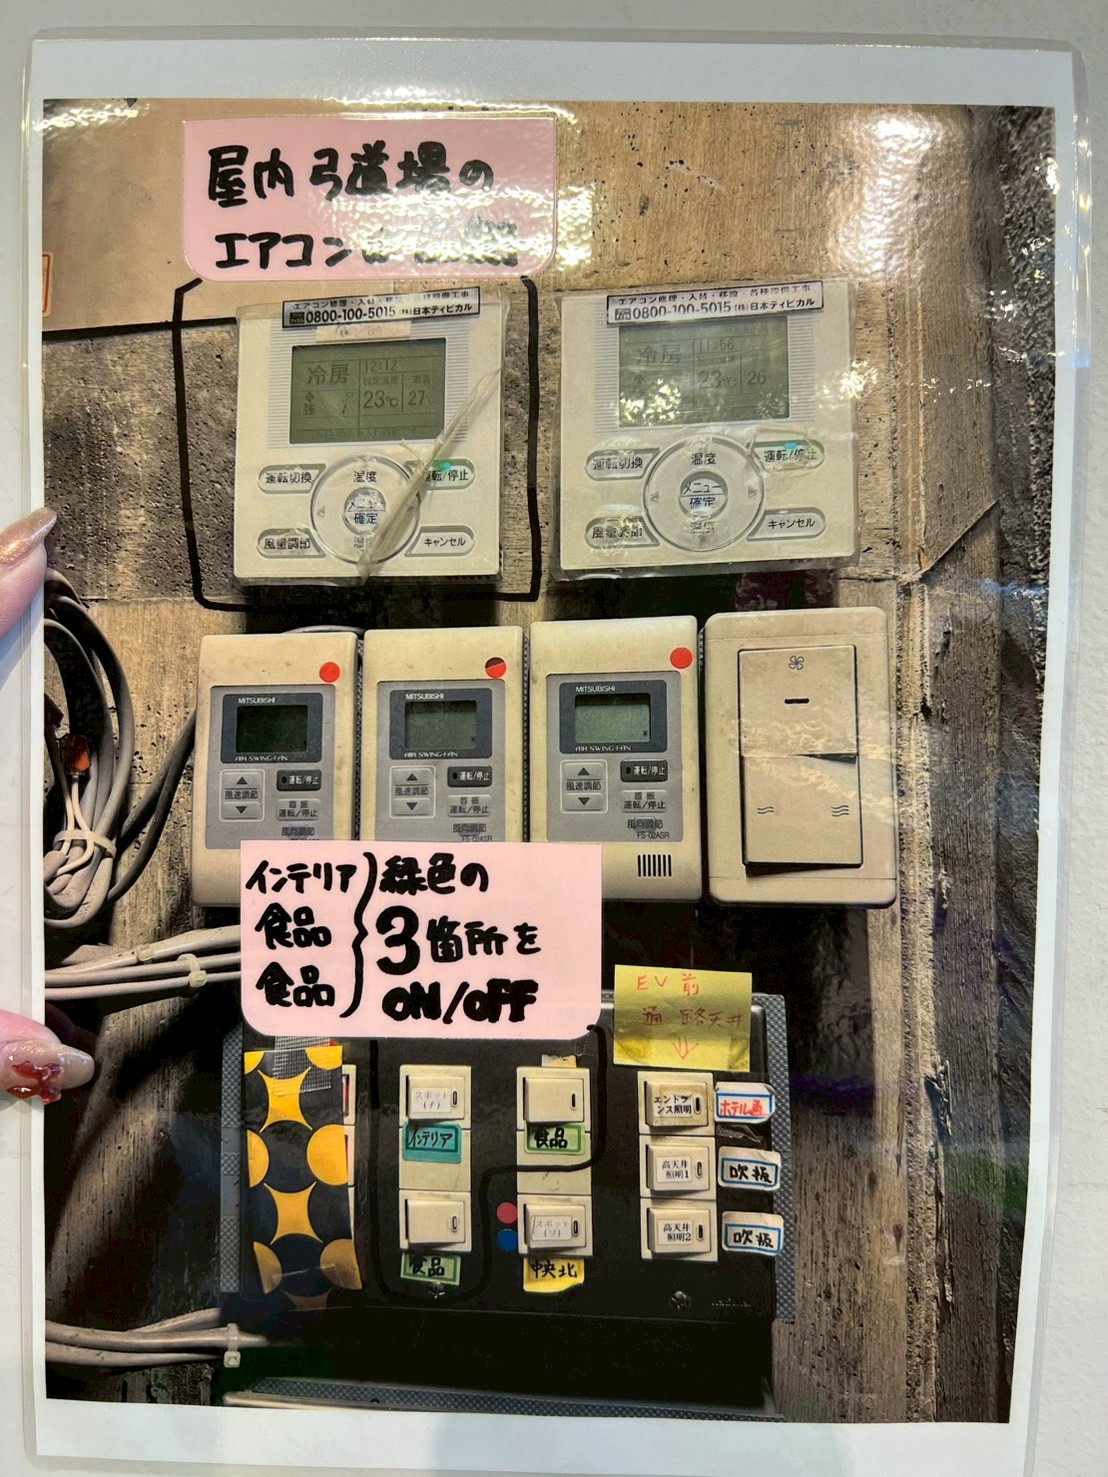 屋内弓道場の
エアコン
エアコン修理・入替・移設・各種設備工事
0800-100-5015 (株)日本ティピカル
冷房
12:12
設定温度
室温
強
23℃
27
運転切換
温度
運転/停止
メニュー
確定
風量調節
温度
キャンセル
エアコン修理・入替・移設・各種設備工事
0800-100-5015 (株)日本ティピカル
冷房
11:56
23℃
26
運転切換
温度
運転/停止
メニュー
確定
風量調節
温度
キャンセル
MITSUBISHI
AIR SWING FAN
風速調節
運転/停止
首振
運転/停止
風向調節
MITSUBISHI
AIR SWING FAN
風速調節
運転/停止
首振
運転/停止
風向調節
FS-02ASR
MITSUBISHI
AIR SWING FAN
風速調節
運転/停止
首振
運転/停止
風向調節
FS-02ASR
インテリア
食品
食品
緑色の
3箇所を
ON/OFF
EV前
通路天井
↓
スポット
(イ)
インテリア
食品
食品
スポット
(ソ)
中央北
エントラ
ンス照明
ホテル通
高天井
照明1
吹抜
高天井
照明2
吹抜